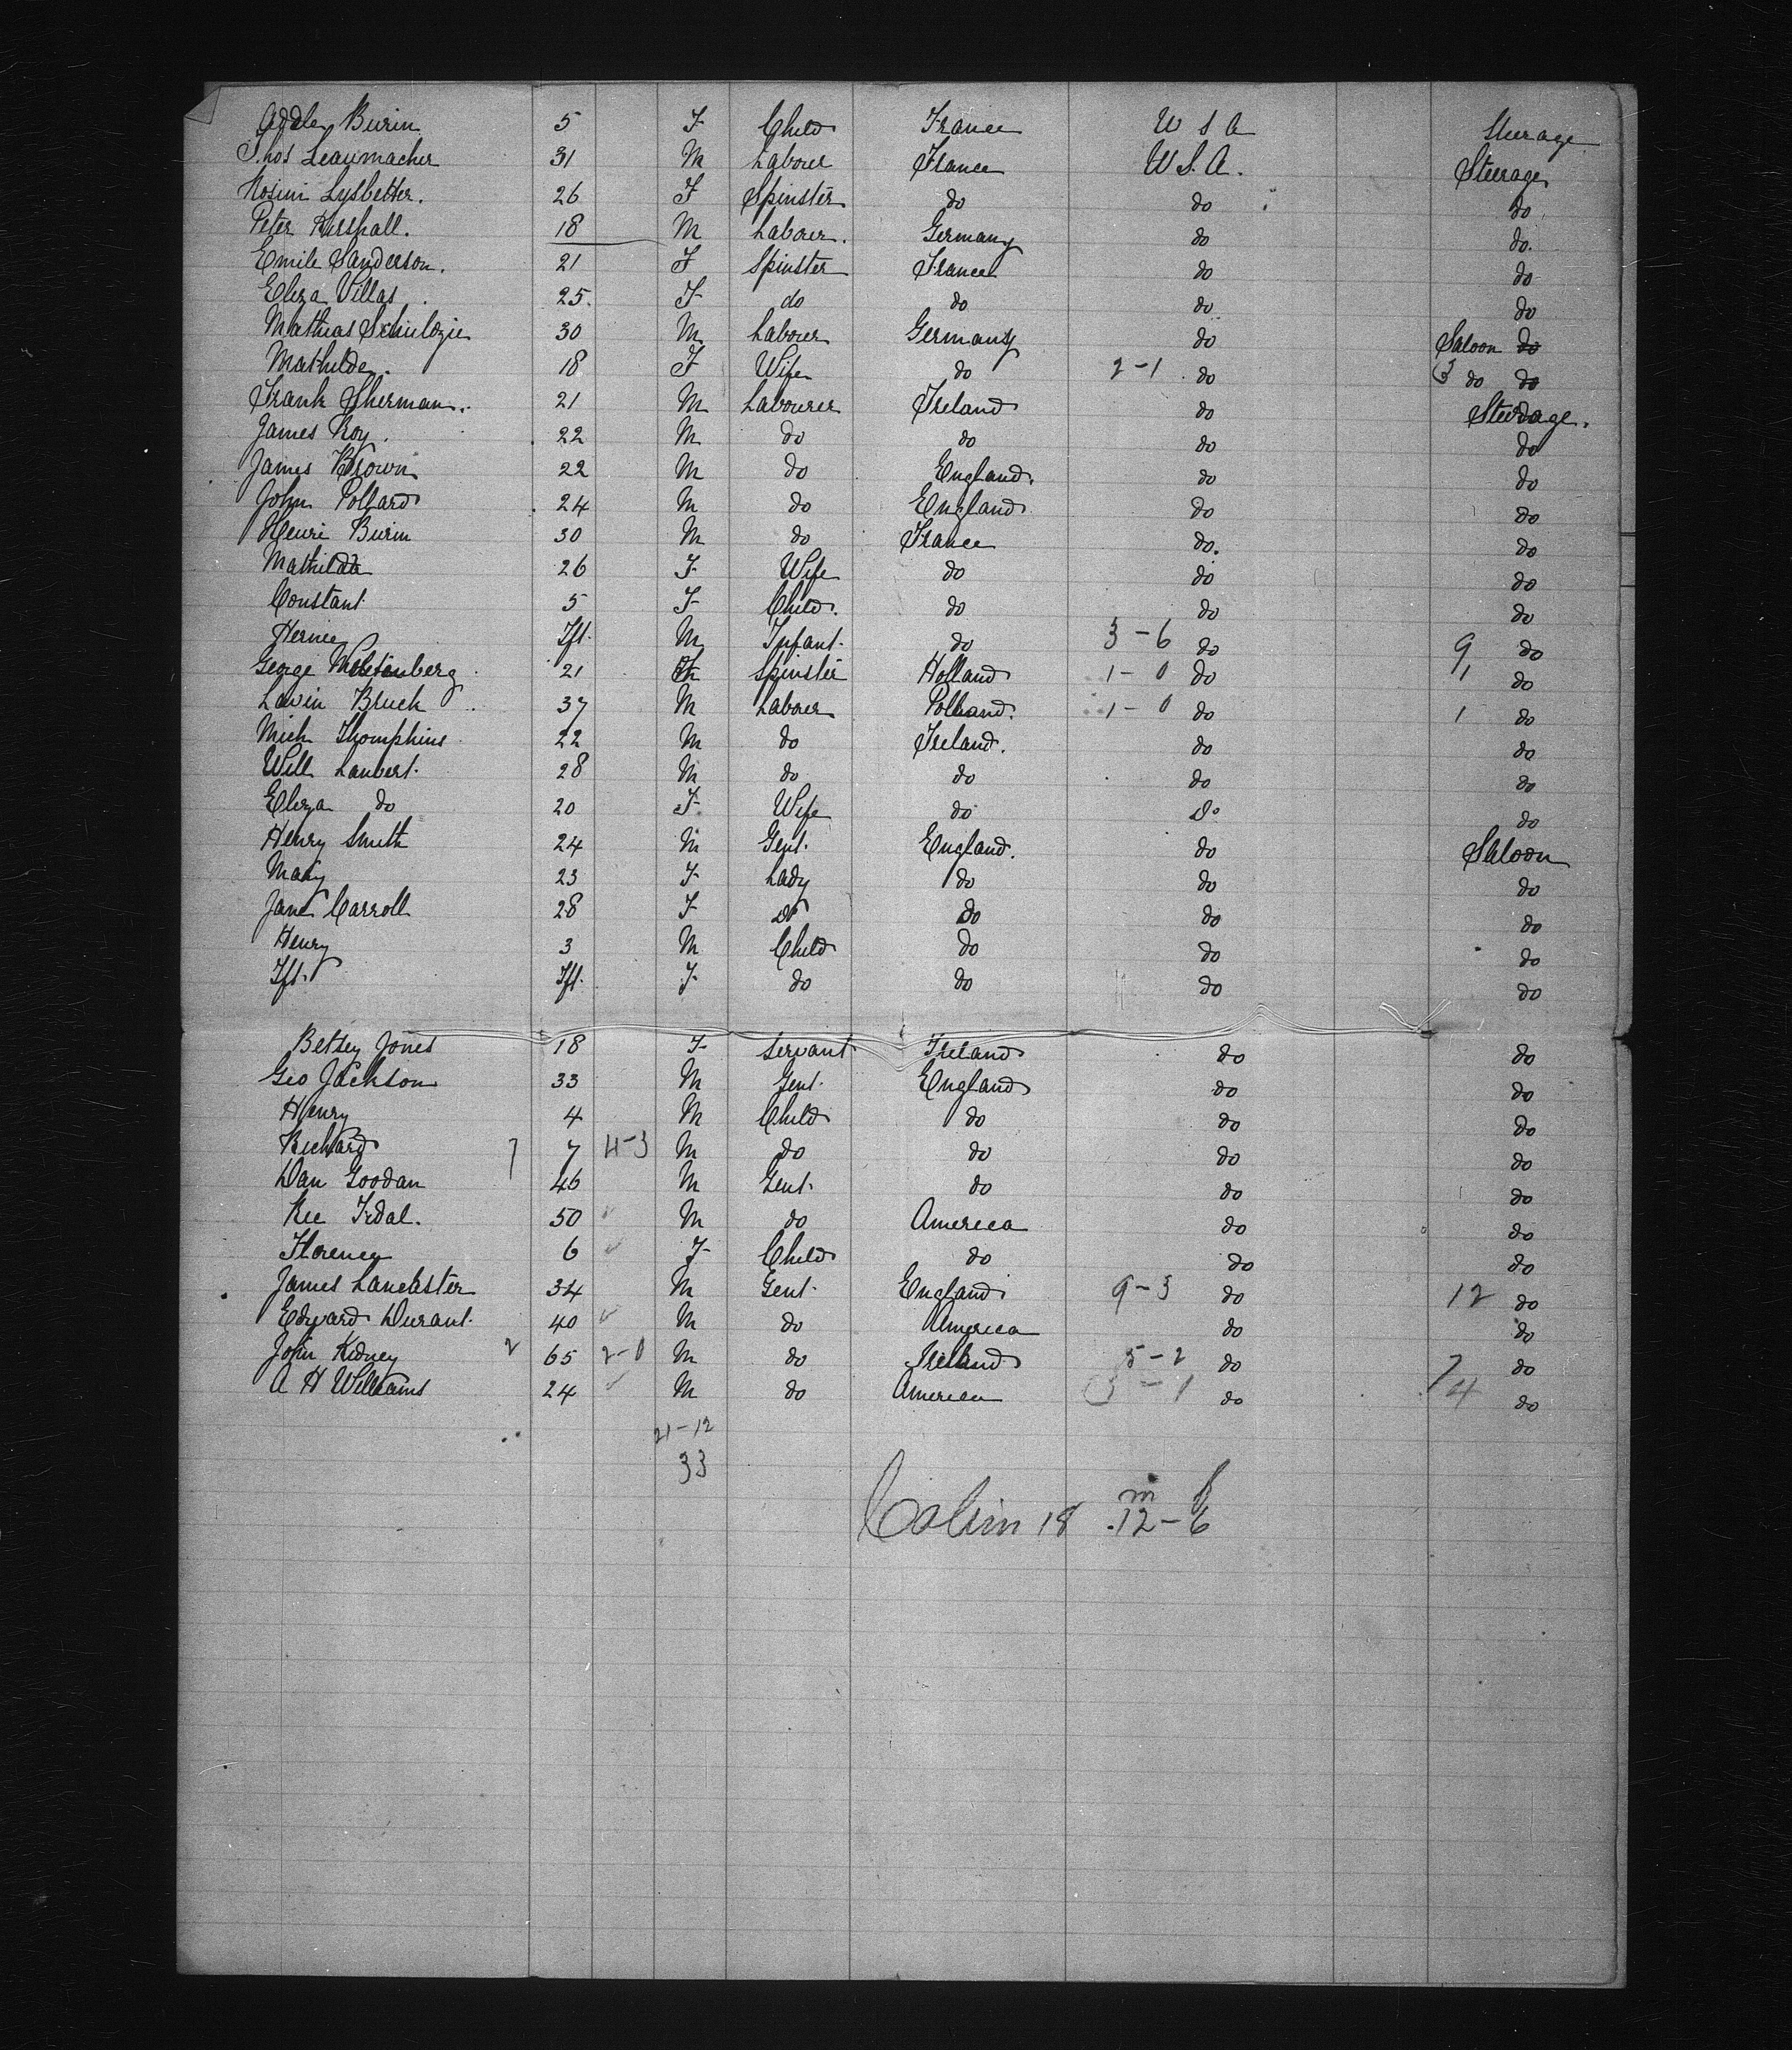 Adele Burin 5 F Child France U S A Steerage
Thos Leaumacher 31 M Labourer France U.S.A. Steerage
Rosini Lysbetter. 26 F Spinster do do do
Peter Herspall. 18 M Labourer. Germany do do.
Emile Sanderson. 21 F Spinster France do do
Eliza Villas 25. F do do do do
Mathias 30 M Labourer Germany do Saloon do
Mathilde. 18 F Wife do 2-1 do 3 do do
Frank Sherman. 21 M Labourer Ireland do Steerage.
James Roy. 22 M do do do do
James Brown 22 M do England. do do
John Pollard 24 M do England do do
Henri Burin 30 M do France do. do
Mathilda 26 F Wife do do do
Constant 5 F Child. do do do
Ift. M Infant. do 3-6 do 9 do
George 21 Spinster Holland 1-0 do 1 do
Lavin Bruck 37 M Labourer Polland. 1-0 do 1 do
Mich Thomphins 22 M do Ireland. do do
Will Lambert. 28 M do do do do
Eliza do 20 F. Wife do do do
Henry Smith 24 M Gent. England. do Saloon
Mary 23 F Lady do do do
Jane Carroll 28 F do do do do
Henry 3 M Child do do do
Ift. Ift. F do do do do
Betsey Jones 18 F Servant Ireland do do
Geo Jackson 33 M Gent. England do do
Henry 4 M Child do do do
Richard 7 7 4-3 M do do do do
Dan Goodan 46 M Gent. do do do
Tidal. 50 M do America do do
Florence 6 F Child do do do
James Lancaster 34 M Gent. England 9-3 do 12 do
Edward Durant. 40 M do America do do
John Kidney 2 65 2-0 M do Ireland 5-2 do 7 do
A H Williams 24 M do America 3-1 do 4 do
21-12
33
m f
18 12-6